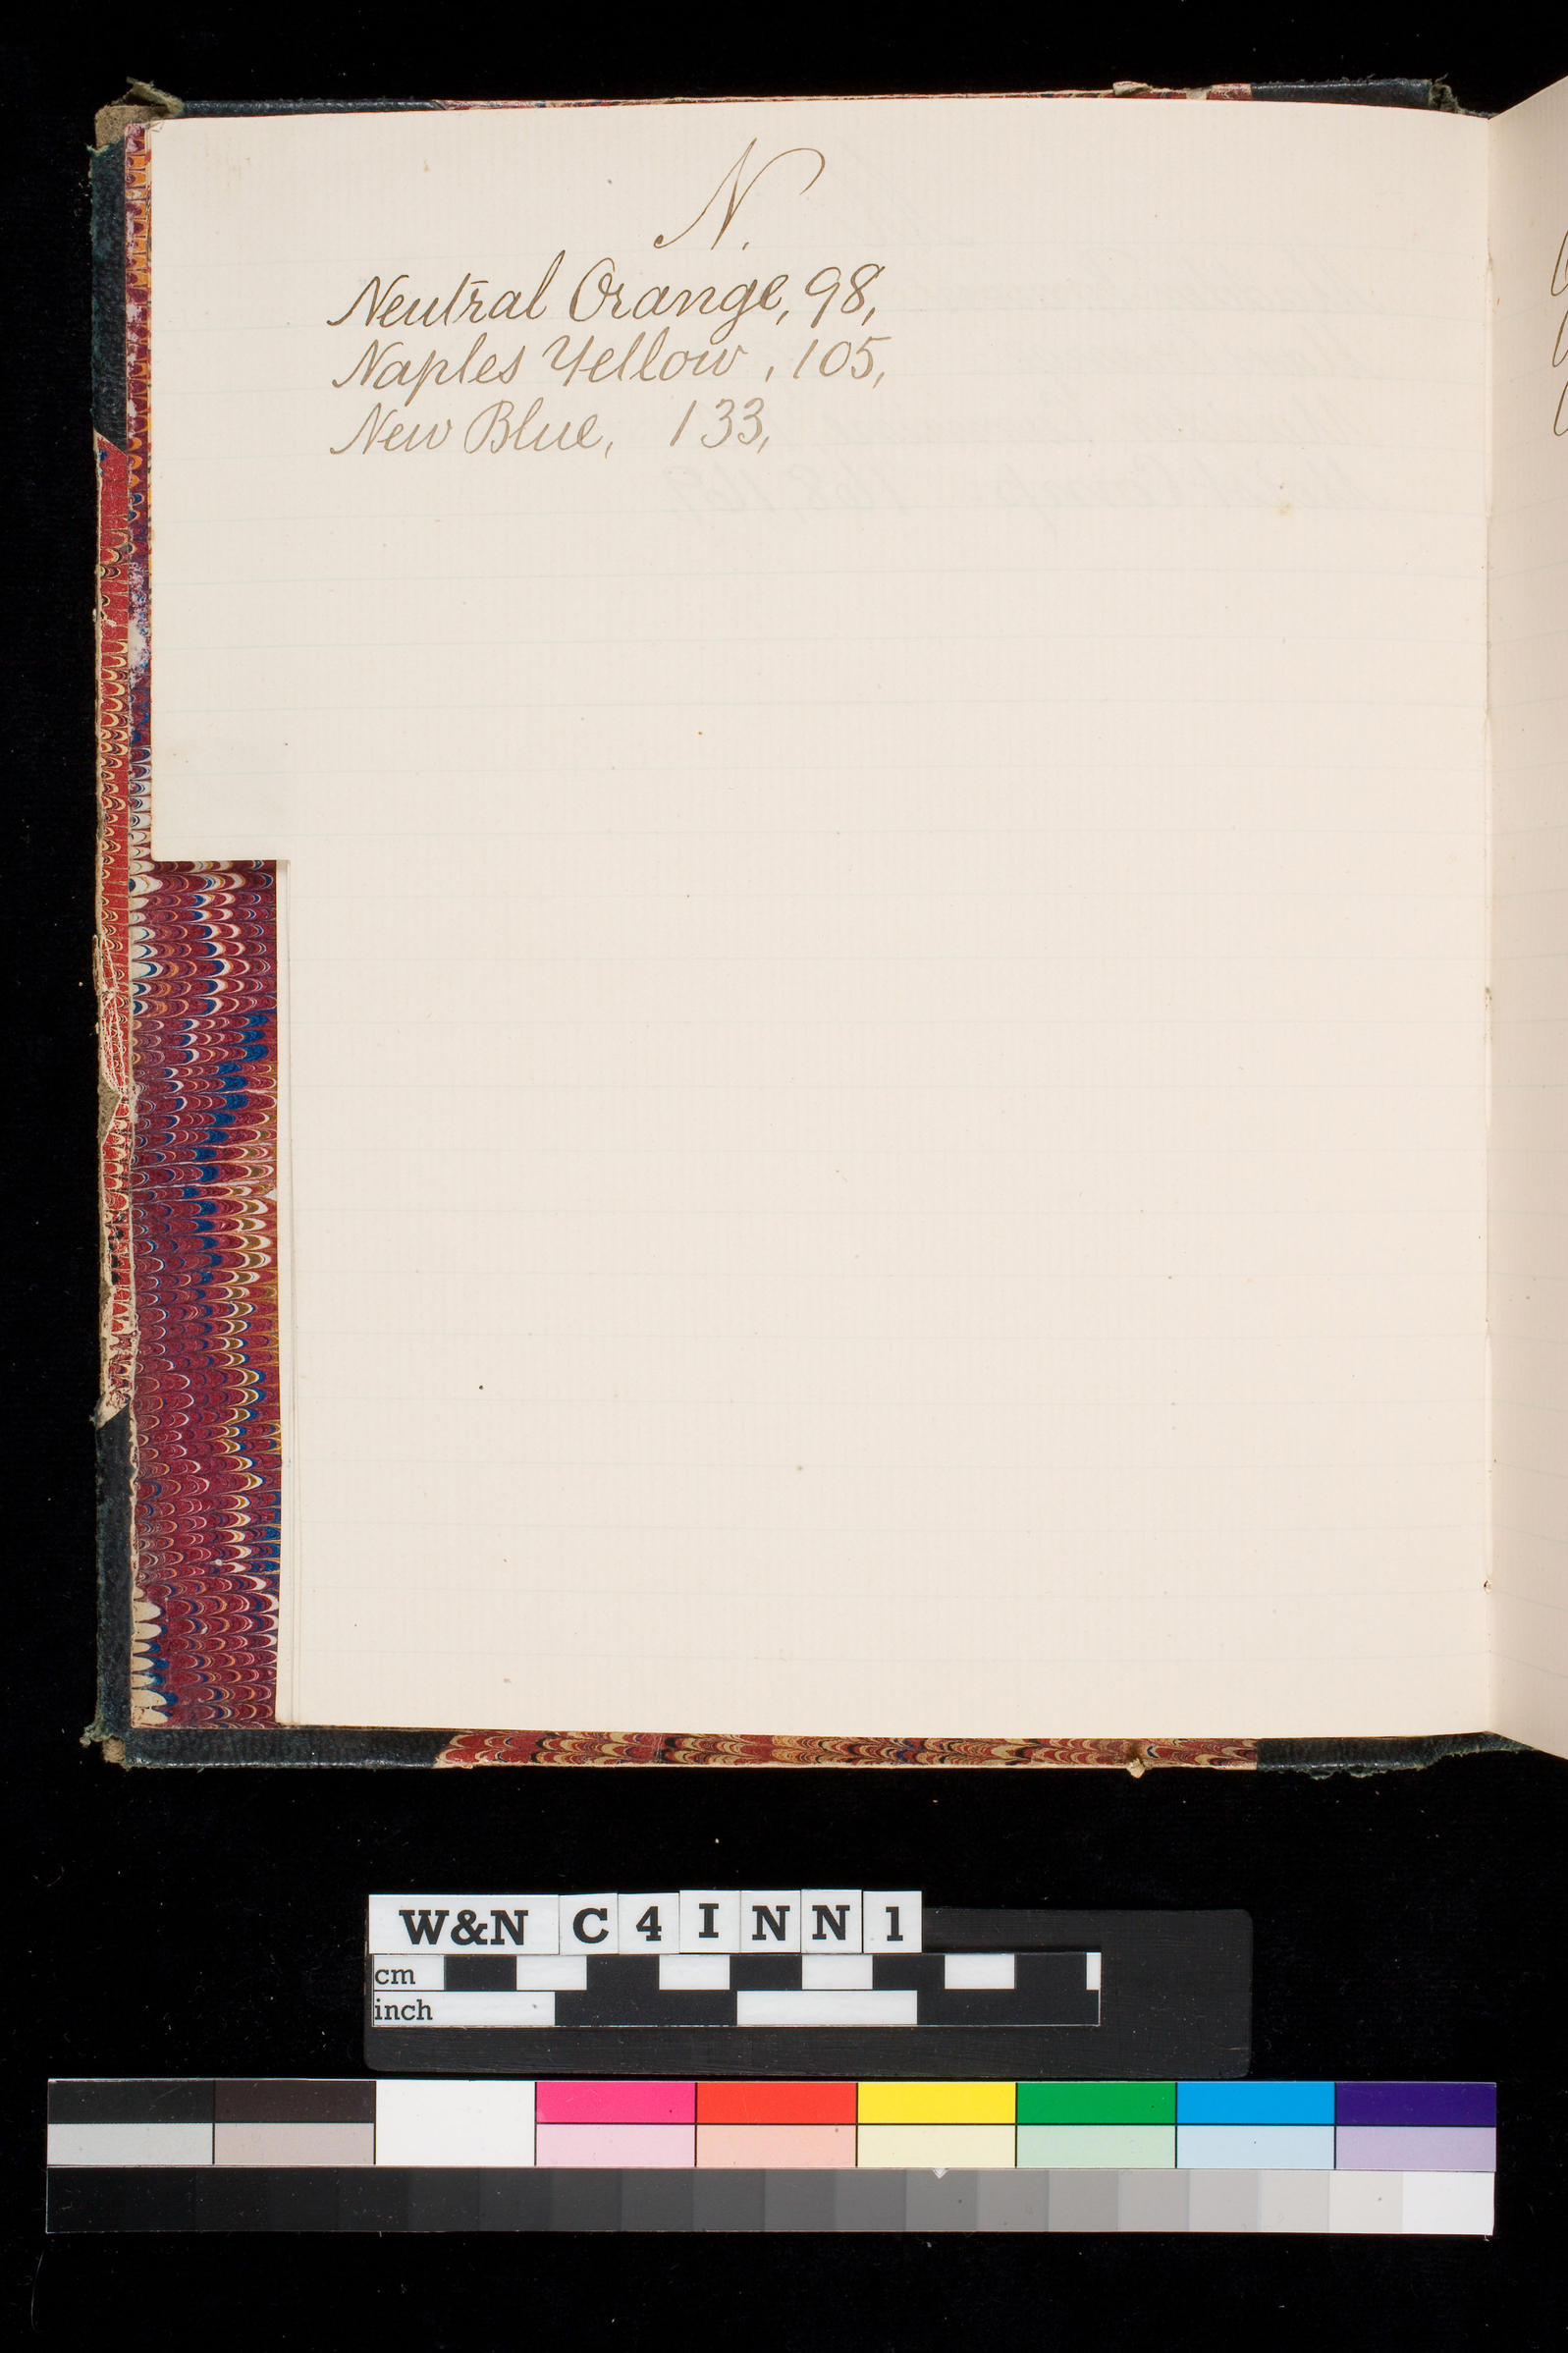 N.
Neutral Orange, 98,
Naples Yellow, 105,
New Blue, 133,
W&N C 4 I N N 1
cm
inch